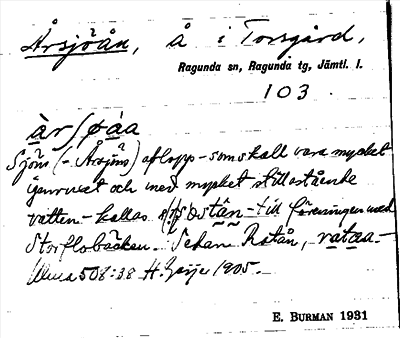 Årsjöån, å i Torsgård,
Ragunda sn, Ragunda tg, Jämtl. l.
103.
àrʃøáa
Sjöns (= Årsjöns) aflopp - som skall vara mycket
igenvuxet och med mycket stillastående
vatten - kallas östån - till föreningen med
Storflobäcken. Sedan Rotån,
508:38 H. Geijer 1905.
E. BURMAN 1931